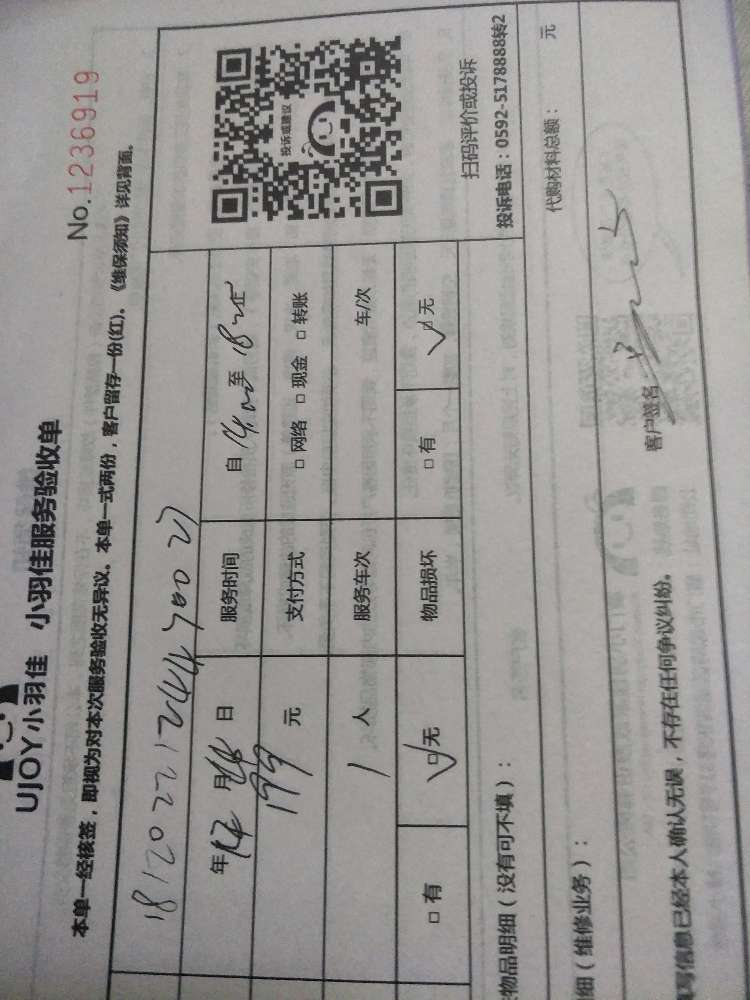 UJOY小羽佳 小羽佳服务验收单
No.1236919
本单一经核签，即视为对本次服务验收无异议。本单一式两份，客户留存一份(红)。《维保须知》详见背面。
年12月28日 服务时间 自14.00至18.00止
199元 支付方式 □网络 □现金 □转账
1人 服务车次 车/次
□有 □无 物品损坏 □有 □无
投诉或建议
扫码评价或投诉
投诉电话：0592-5178888转2
物品明细（没有可不填）：
细（维修业务）：
代购材料总额： 元
写信息已经本人确认无误，不存在任何争议纠纷。 客户签名